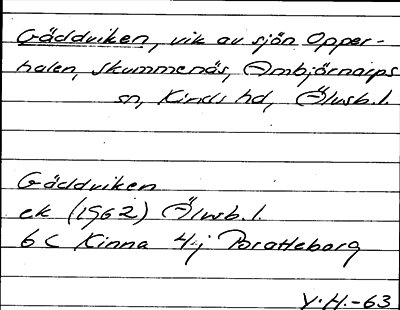 Gäddviken, vik av sjön Opper-
halen, Skummenäs, Ambjörnarps
sn, Kinds hd, Älvsb.l.
Gäddviken
ek (1962) Älvsb.l.
6 C Kinna 4-j Bratteborg
V.H.-63